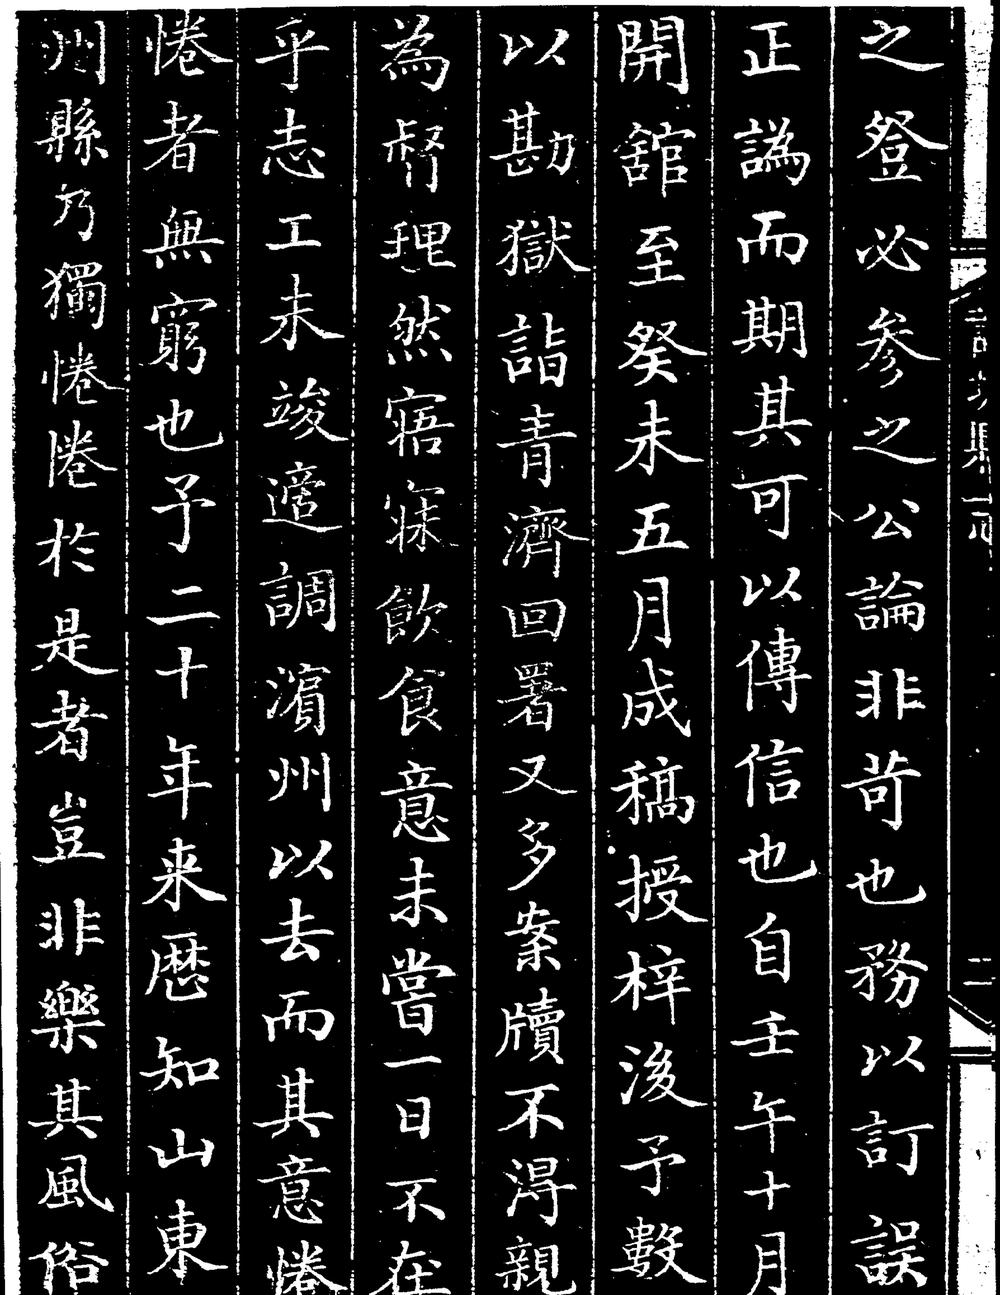 之登必参之公論非苛也務以訂誤
正譌而期其可以傳信也自壬午十月
開舘至癸未五月成稿授梓後予數
以勘獄詣青濟回署又多案牘不淂親
為督理然寤寐飲食意未嘗一日不在
乎志工未竣適調濱州以去而其意惓
惓者無窮也予二十年来歴知山東
州縣乃獨惓惓於是者豈非樂其風俗
二